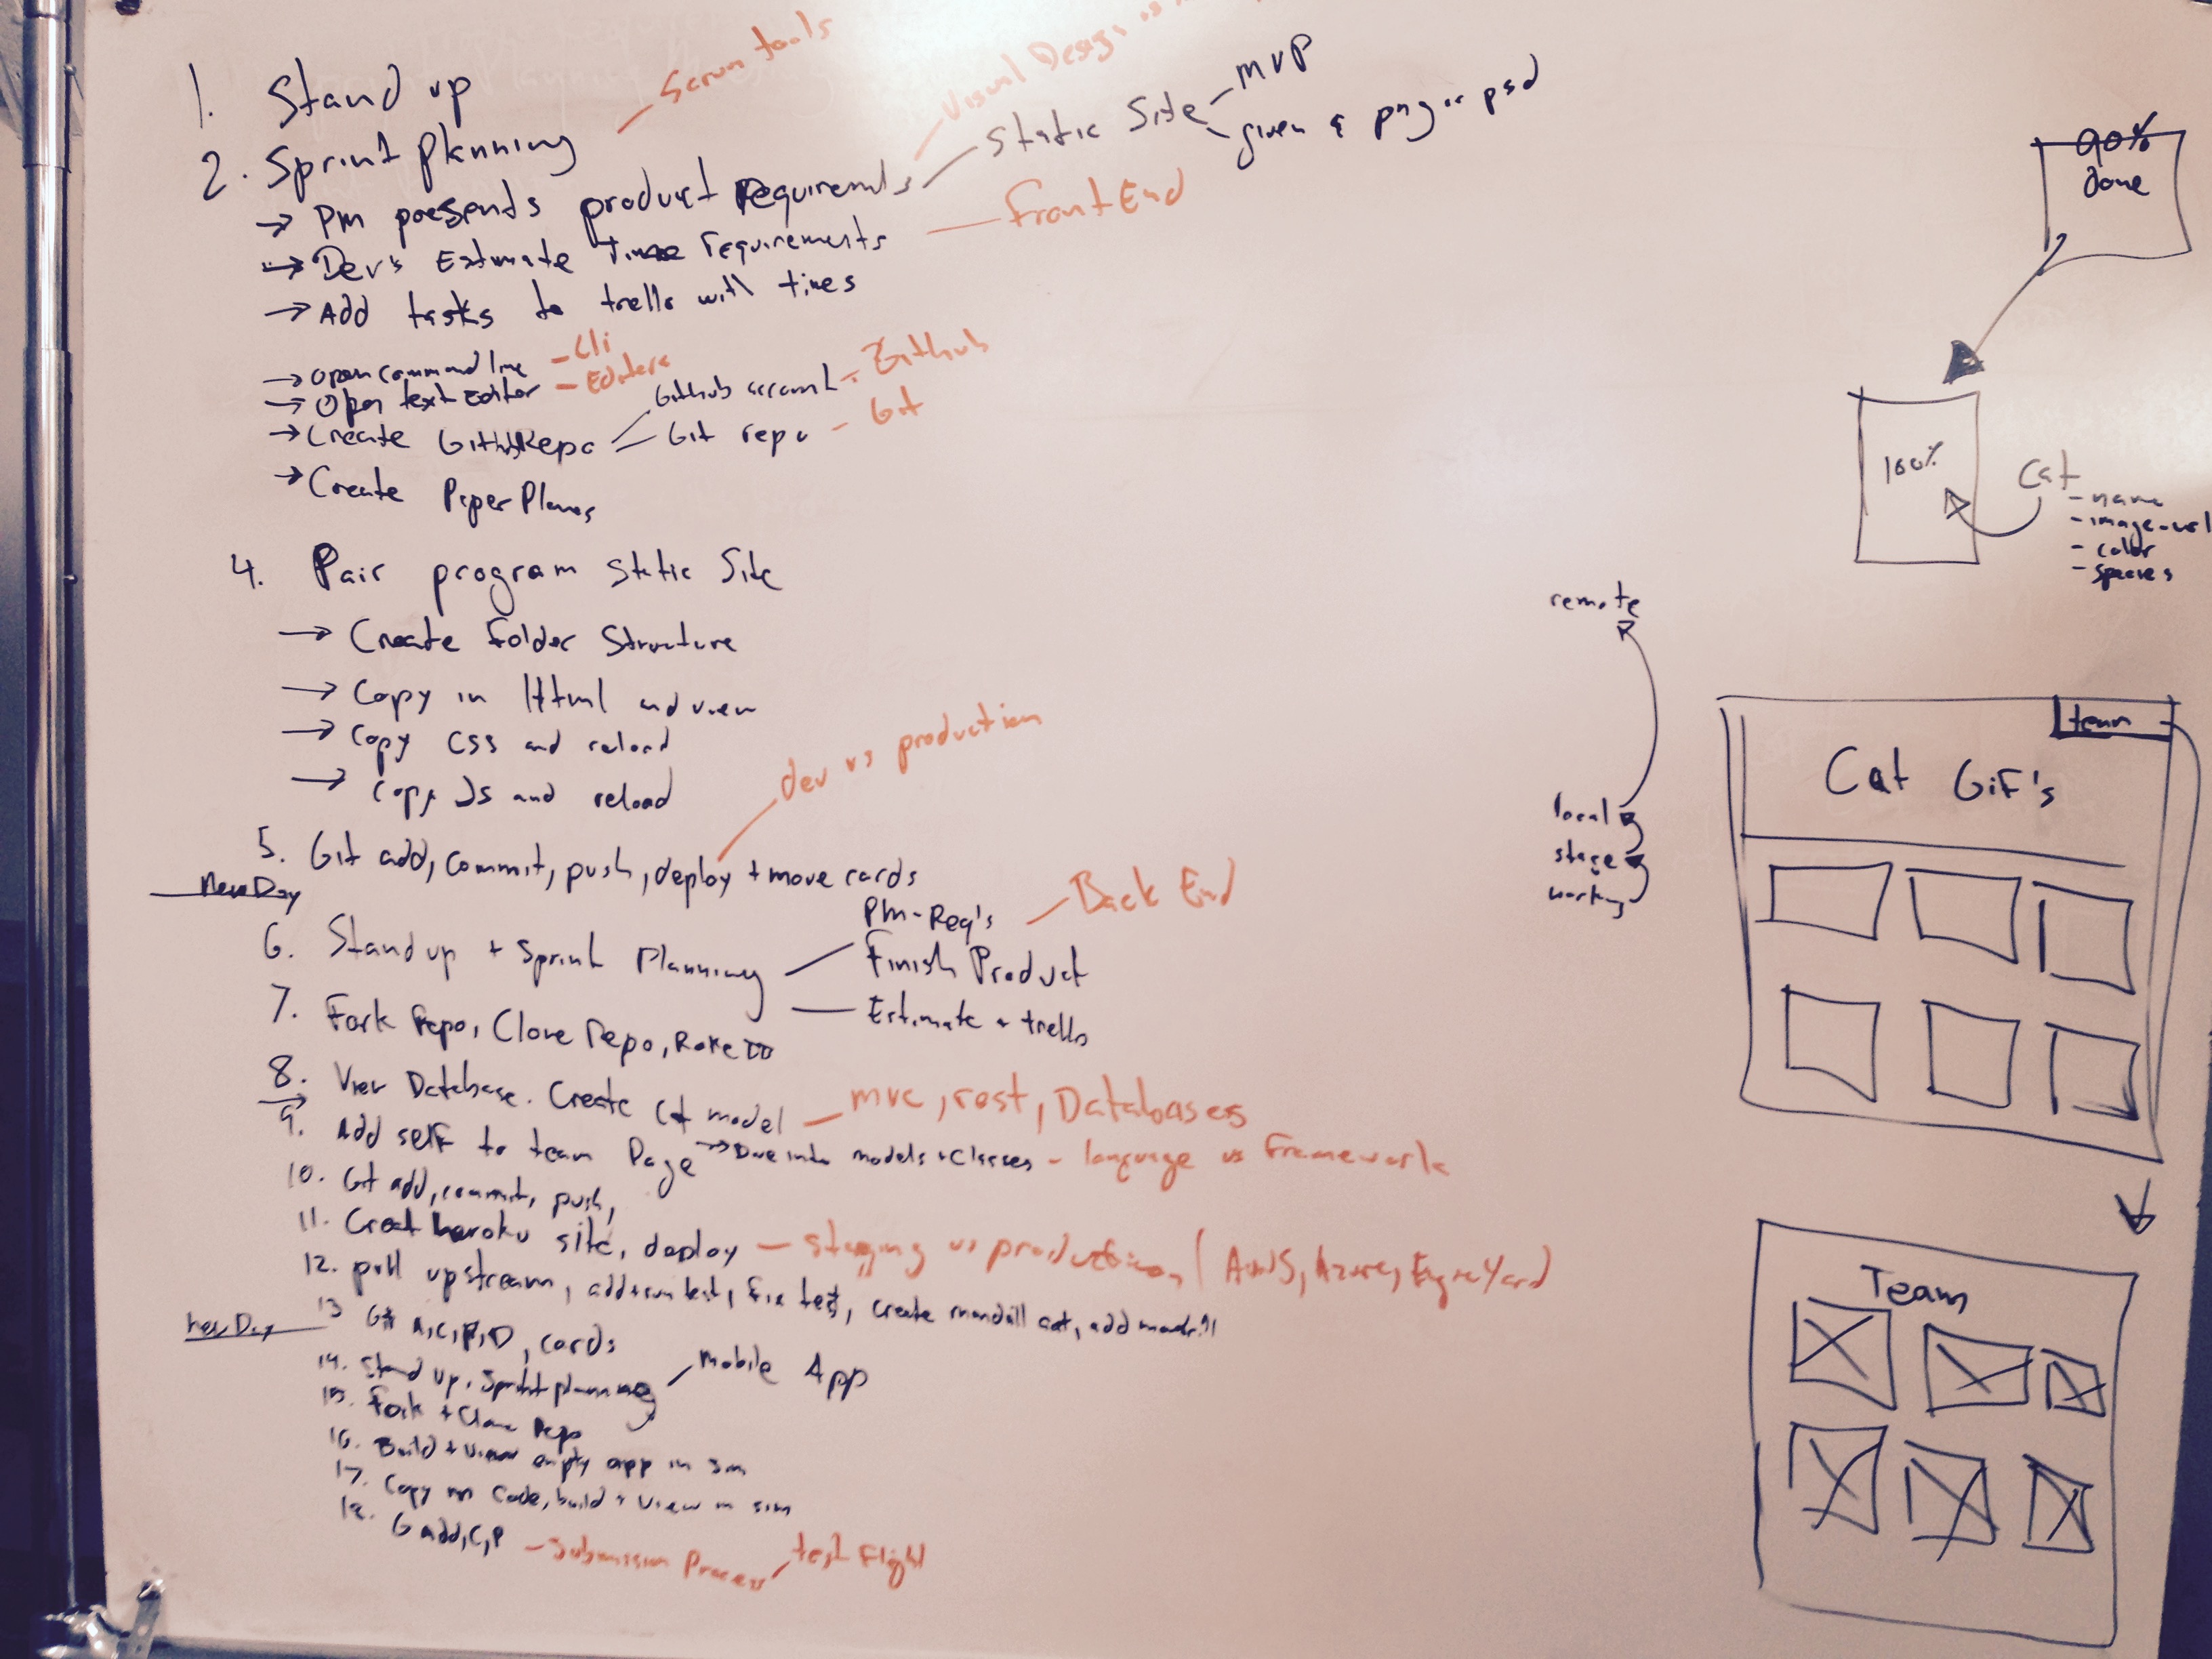 1. Stand up
Scrum tools
Visual Design
2. Sprint planning
→ PM presents product Requirements
Static Site
- MVP
- given a png or psd
→ Dev's Estimate Time requirements
Front End
→ Add tasks to trello with times
→ open command line
- Cli
→ Open text Editor
- Editors
→ Create GitHubRepo
Github account
- Github
Git repo
- Git
→ Create Paper Planes
4. Pair program static Site
→ Create Folder Structure
→ Copy in Html and view
→ Copy CSS and reload
→ Copy JS and reload
dev vs production
5. Git add, commit, push, deploy + move cards
New Day
6. Stand up + Sprint Planning
PM-Req's
Back End
Finish Product
Estimate + trello
7. Fork repo, Clone repo, Rake
8. View Database. Create Cat model
- mvc, rest, Databases
9. Add self to team Page
→ Dive into models + Classes - language vs Framework
10. Git add, commit, push,
11. Creat heroku site, deploy
- Staging vs production, (AWS, Azure, EngineYard
12. pull upstream, add + run test, fix test, create mandrill acct, add mandrill
13 Git A,C,P,D, cards
New Day
14. Stand up, Sprint planning
Mobile App
15. Fork + Clone Repo
16. Build + view empty app in sim
17. Copy in Code, build + view in sim
18. G add,C,P
- Submission Process
test Flight
90%
done
100%
Cat
- name
- image-url
- color
- species
remote
local
stage
working
team
Cat GiF's
Team